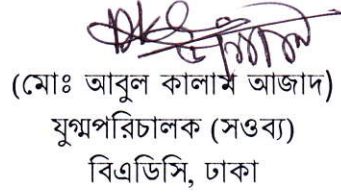 (মোঃ আবুল কালাম আজাদ)
যুগ্মপরিচালক (সওব্য)
বিএডিসি, ঢাকা